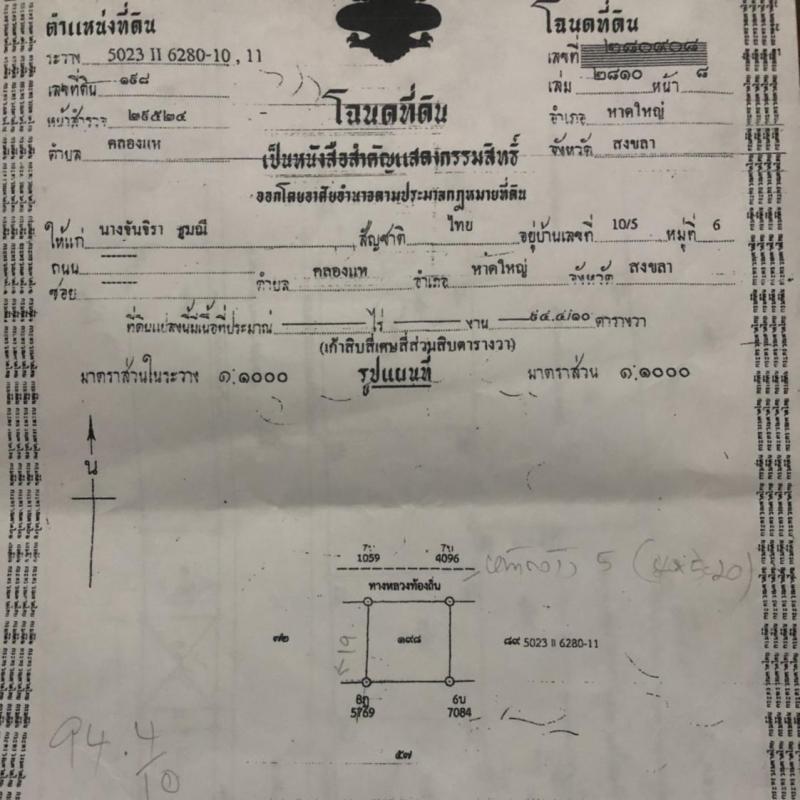 ตำแหน่งที่ดิน
ระวาง 5023 II 6280-10 , 11
เลขที่ดิน ๑๙๘
หน้าสำรวจ ๒๙๕๒๔
ตำบล คลองแห
โฉนดที่ดิน
เลขที่ ๒๘๐๙๐๘
เล่ม ๒๘๑๐ หน้า ๘
อำเภอ หาดใหญ่
จังหวัด สงขลา
โฉนดที่ดิน
เป็นหนังสือสำคัญแสดงกรรมสิทธิ์
ออกโดยอาศัยอำนาจตามประมวลกฎหมายที่ดิน
ให้แก่ นางจันจิรา ชูมณี สัญชาติ ไทย อยู่บ้านเลขที่ 10/5 หมู่ที่ 6
ถนน ------
ซอย ------ ตำบล คลองแห อำเภอ หาดใหญ่ จังหวัด สงขลา
ที่ดินแปลงนี้มีเนื้อที่ประมาณ ไร่ งาน ๙๔.๔/๑๐ ตารางวา
(เก้าสิบสี่เศษสี่ส่วนสิบตารางวา)
มาตราส่วนในระวาง ๑:๑๐๐๐ รูปแผนที่ มาตราส่วน ๑:๑๐๐๐
น
7บ 7บ
1059 4096
5 (4x5=20)
ทางหลวงท้องถิ่น
๗๒ 19 ๑๙๘ ๘๙ 5023 II 6280-11
8ฎ 6บ
5769 7084
94.4
/10
๕๗